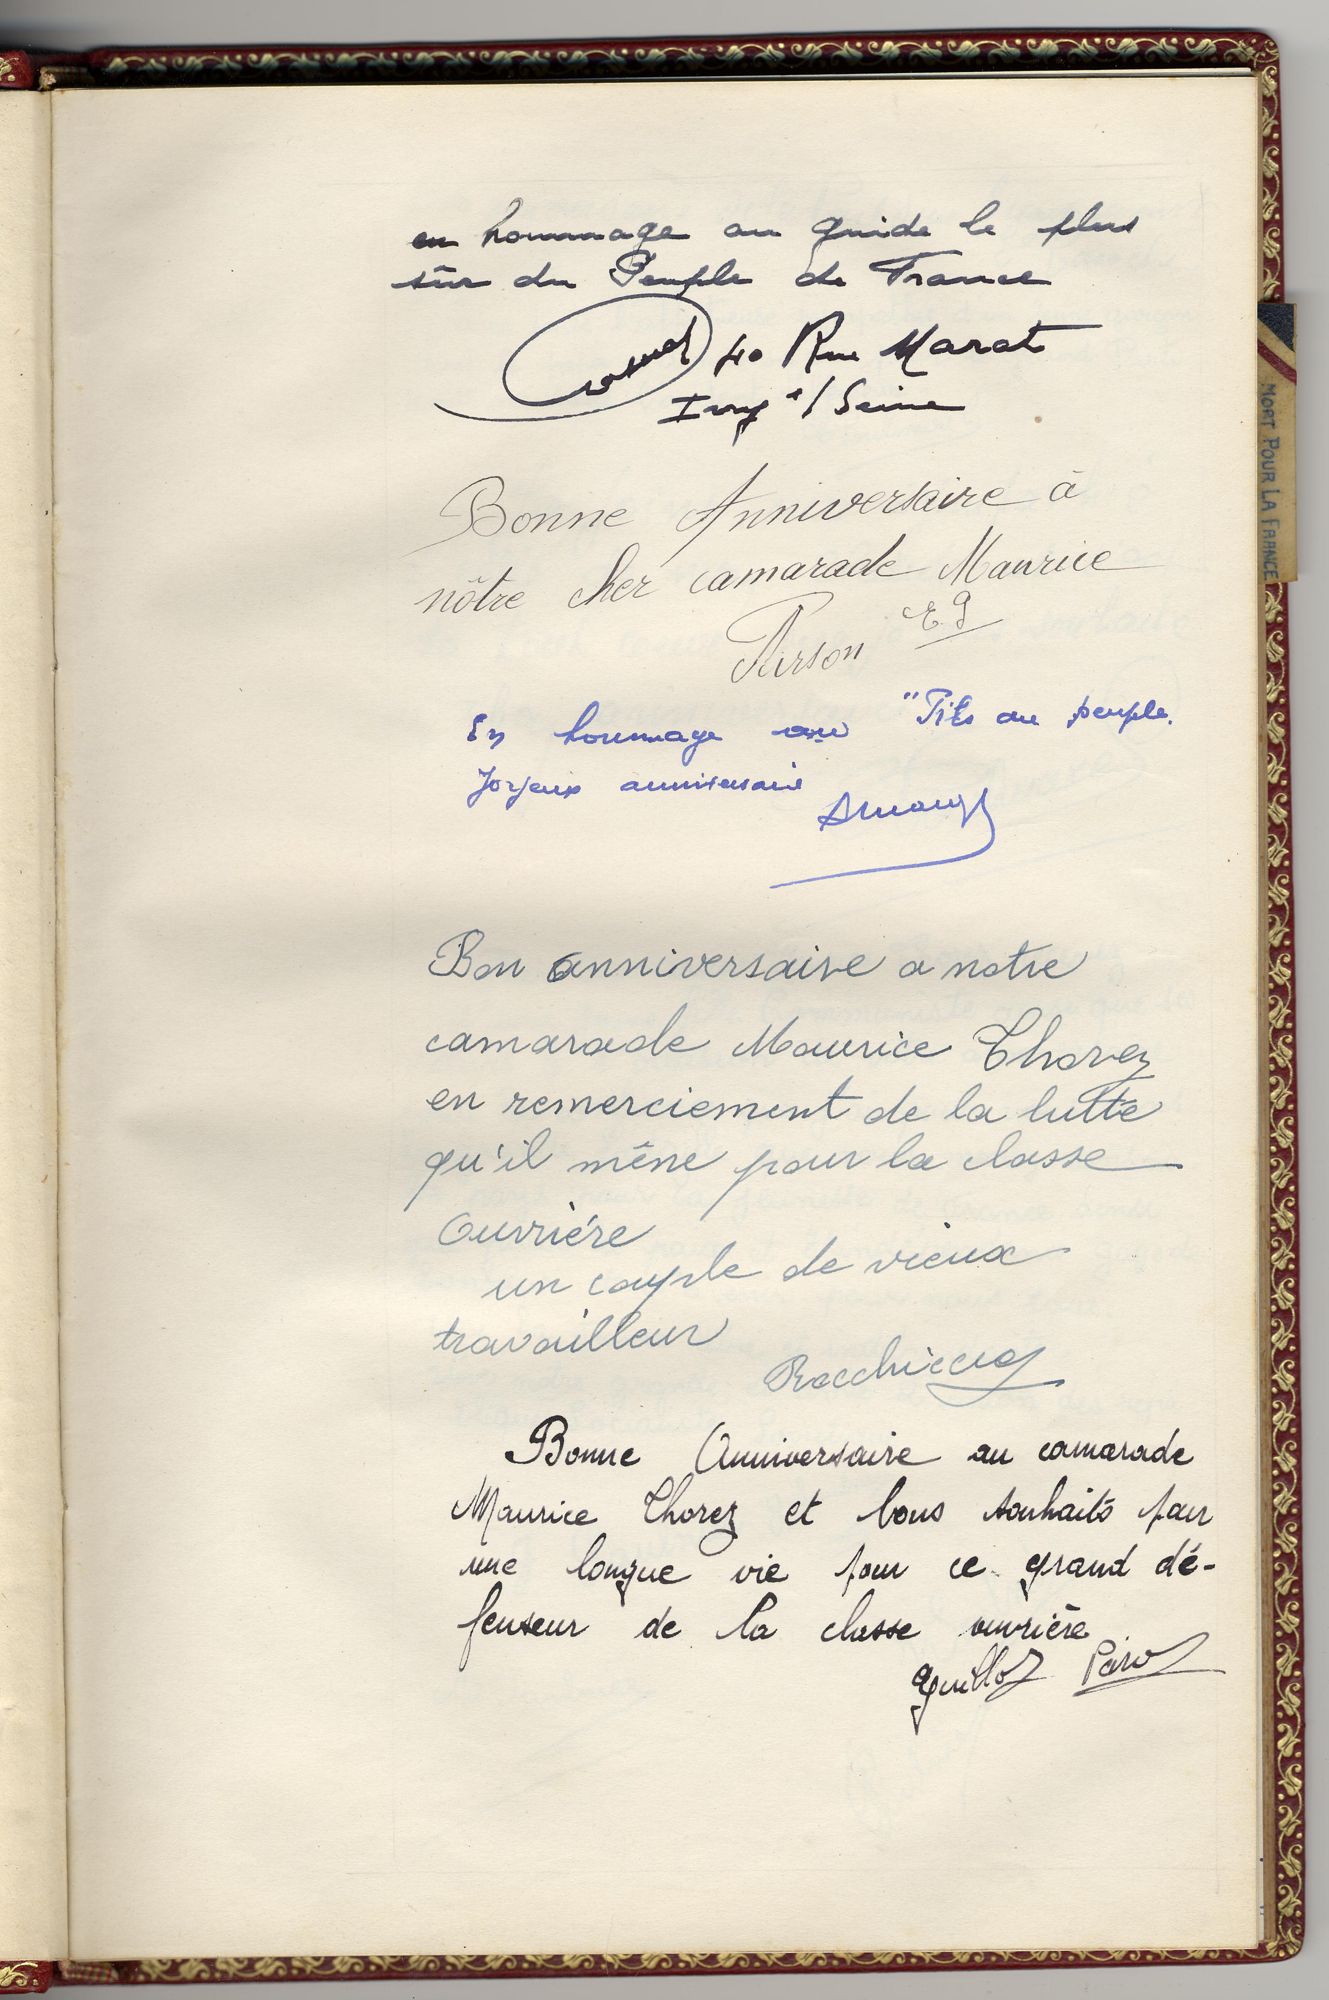 en hommage au guide le plus
sûr du Peuple de France
40 Rue Marat
Ivry s/Seine
MORT POUR LA FRANCE
Bonne Anniversaire à
nôtre cher camarade Maurice
Pirson
En hommage au "Fils du peuple.
Joyeux anniversaire
Bon anniversaire a notre
camarade Maurice Thorez
en remerciement de la lutte
qu'il mène pour la classe
Ouvriére
un couple de vieux
travailleur
Bonne Anniversaire au camarade
Maurice Thorez et bons souhaits pour
une longue vie pour ce grand dé-
fenseur de la classe ouvrière
Guillot